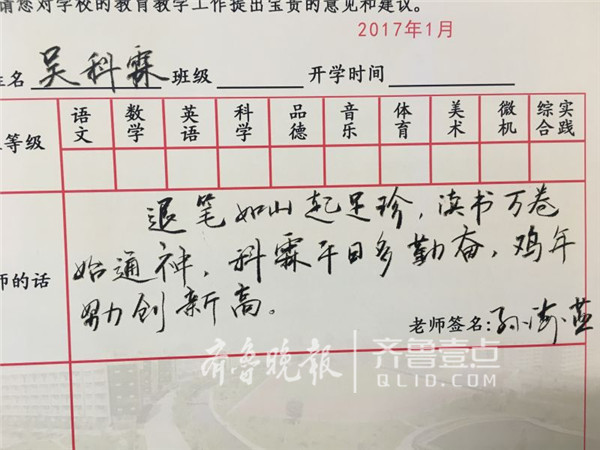 请您对学校的教育教学工作提出宝贵的意见和建议。
2017年1月
名 吴科霖 班级 开学时间
等级 语文 数学 英语 科学 品德 音乐 体育 美术 微机 综合实践
退笔如山起足珍，读书万卷
师的话 始通神，科霖平日多勤奋，鸡年
努力创新高。
老师签名：孙 燕
齐鲁晚报 齐鲁壹点
QLID.COM